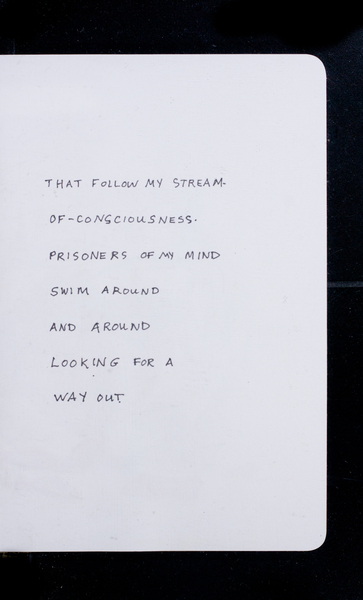 THAT FOLLOW MY STREAM-
OF-CONSCIOUSNESS.
PRISONERS OF MY MIND
SWIM AROUND
AND AROUND
LOOKING FOR A
WAY OUT